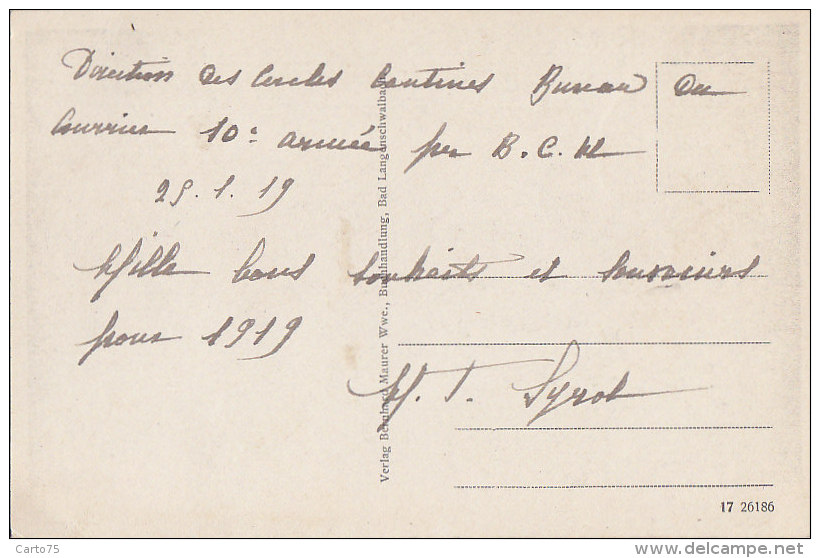 Direction des Cercles Cantines Bureau du
Courrier 10e armée par B.C.M
25.1.19
Mille bons souhaits et souvenirs
pour 1919
M. T. Syrol
Verlag Bernhard Maurer Wwe., Buchhandlung, Bad Langenschwalbach
17 26186
Carto75
delcampe.net